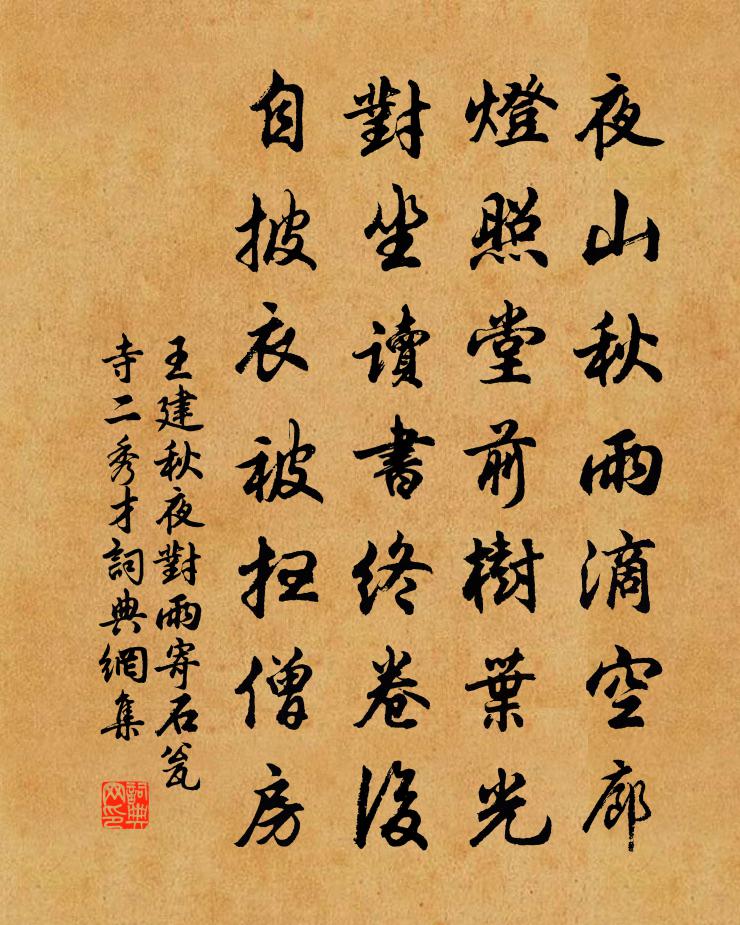 夜山秋雨滴空廊
燈照堂前樹葉光
對坐讀書終卷後
自披衣被扫僧房
王建秋夜對雨寄石瓮
寺二秀才詞典網集
詞典
网印